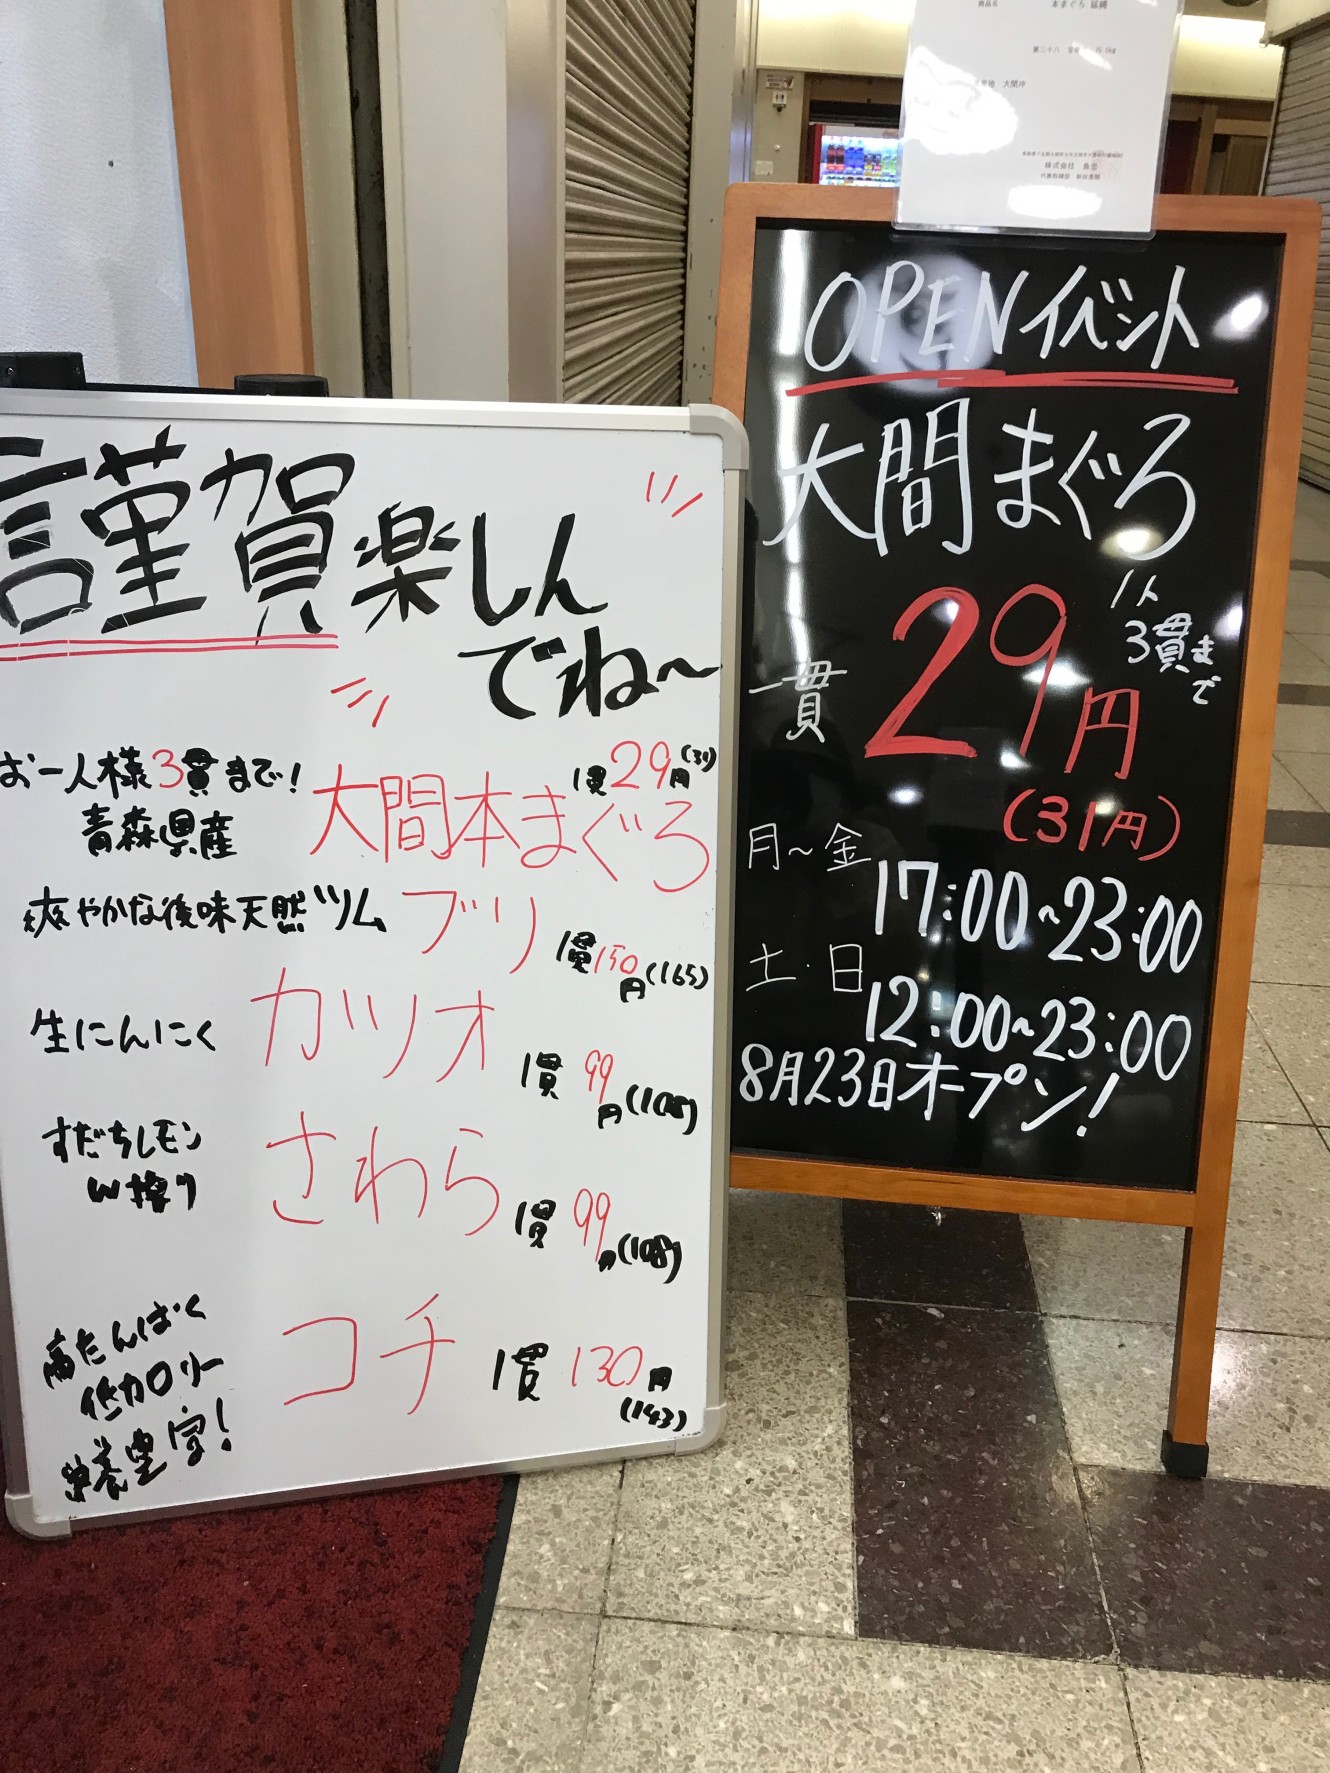 謹賀楽しん
でね〜
お一人様3貫まで!
青森県産
大間本まぐろ
1貫29円(31)
爽やかな後味天然ツム
ブリ
1貫150円(165)
生にんにく
カツオ
1貫99円(108)
すだちレモン
W搾り
さわら
1貫99円(108)
高たんぱく
低カロリー
栄養豊富!
コチ
1貫130円
(143)
商品名 本まぐろ 延縄
大間沖
株式会社 魚忠
代表取締役
OPENイベント
大間まぐろ
1人
3貫まで
一貫 29円
(31円)
月〜金
17:00~23:00
土・日
12:00~23:00
8月23日オープン!